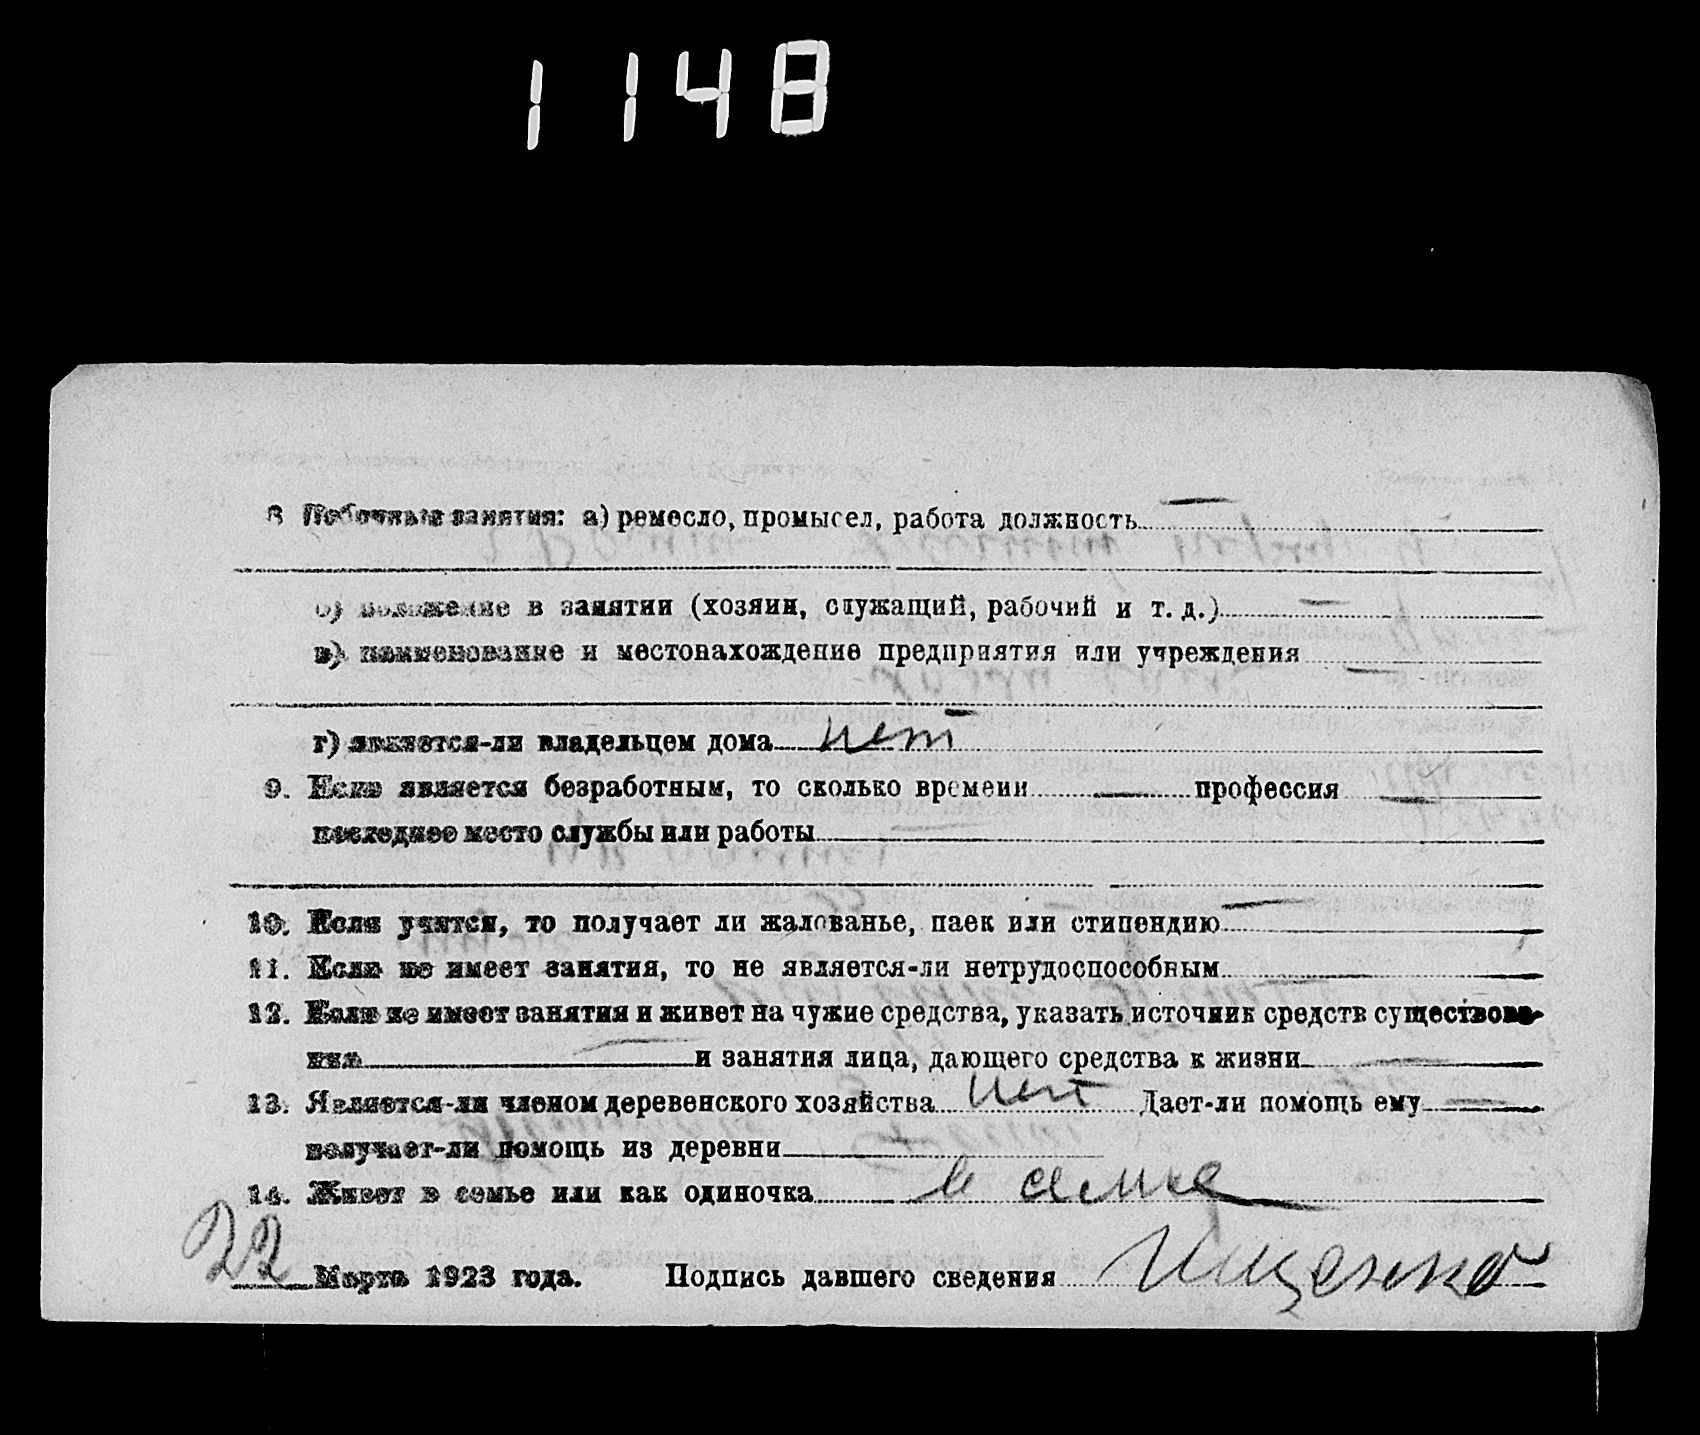 1148
8 Побочные занятия: а) ремесло, промысел, работа должность —
б) положение в занятии (хозяин, служащий, рабочий и т. д.) —
в) наименование и местонахождение предприятия или учреждения —
г) является-ли владельцем дома нет
9. Если является безработным, то сколько времени — профессия —
последнее место службы или работы —
10. Если учится, то получает ли жалованье, паек или стипендию —
11. Если не имеет занятия, то не является-ли нетрудоспособным
12. Если не имеет занятия и живет на чужие средства, указать источник средств существова-
ния — и занятия лица, дающего средства к жизни —
13. Является-ли членом деревенского хозяйства нет Дает-ли помощь ему —
получает-ли помощь из деревни
14. Живет в семье или как одиночка в семье
22 Марта 1923 года. Подпись давшего сведения Ищенко